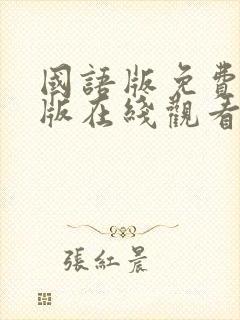 國語版免費
版在綫觀看
張紅晨